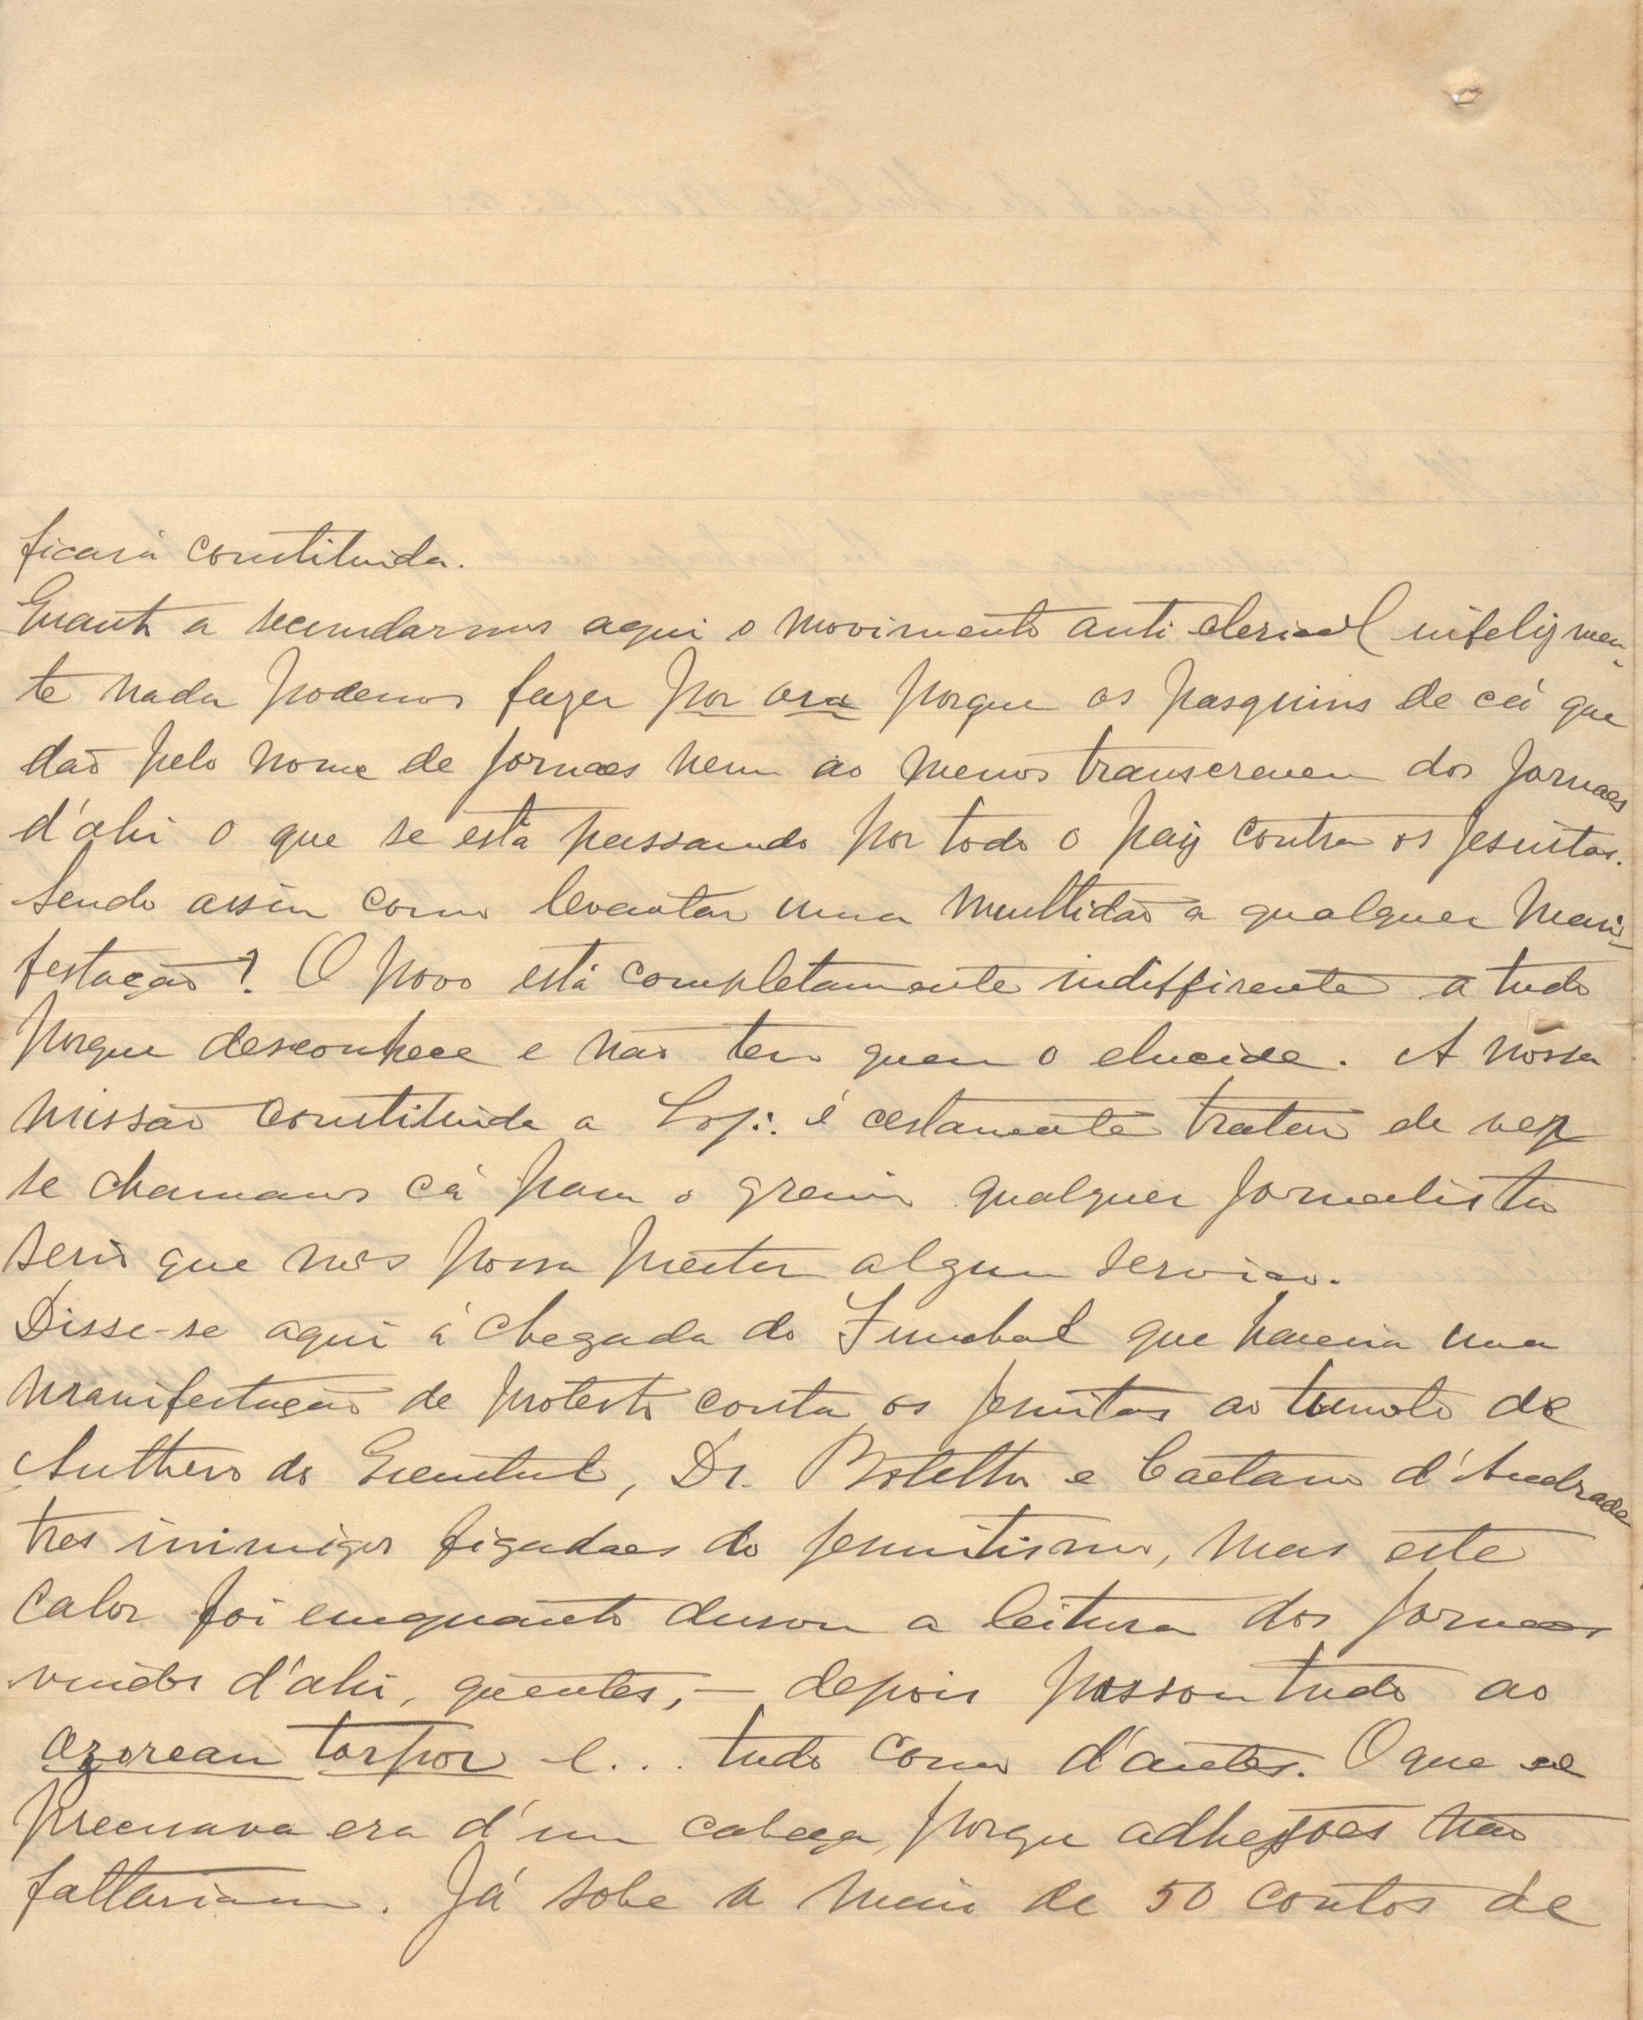 ficará constituida.
Quanto a secundarmos aqui o movimento anti clerical infelizmen-
te nada podemos fazer por ora porque os pasquins de cá que
dão pelo nome de jornaes nem ao menos transcrevem dos jornaes
d'ahi o que se está passando por todo o paiz contra os jesuitas.
Sendo assim como levantar uma multidão a qualquer mani-
festação? O povo está completamente indiffirente a tudo
porque desconhece e não tem quem o elucide. A nossa
missão constituida a Loj∴ é certamente tratar de ver
se chamamos cá para o gremio qualquer jornalista
serio que nos possa prestar algum serviço.
Disse-se aqui á chegada do Funchal que haveria uma
manifestação de protesto contra os jesuitas ao tumulo de
Anthero do Quental, Dr. Botelho e Caetano d'Andrade
tres inimigos figadaes do jesuitismo, mas este
calor foi emquanto durou a leitura dos jornaes
vindos d'ahi, quentes, — depois passou tudo ao
azorean torpor e... tudo como d'antes. O que se
precisava era d'um cabeça, porque adhesões não
faltariam. Já sobe a mais de 50 contos de